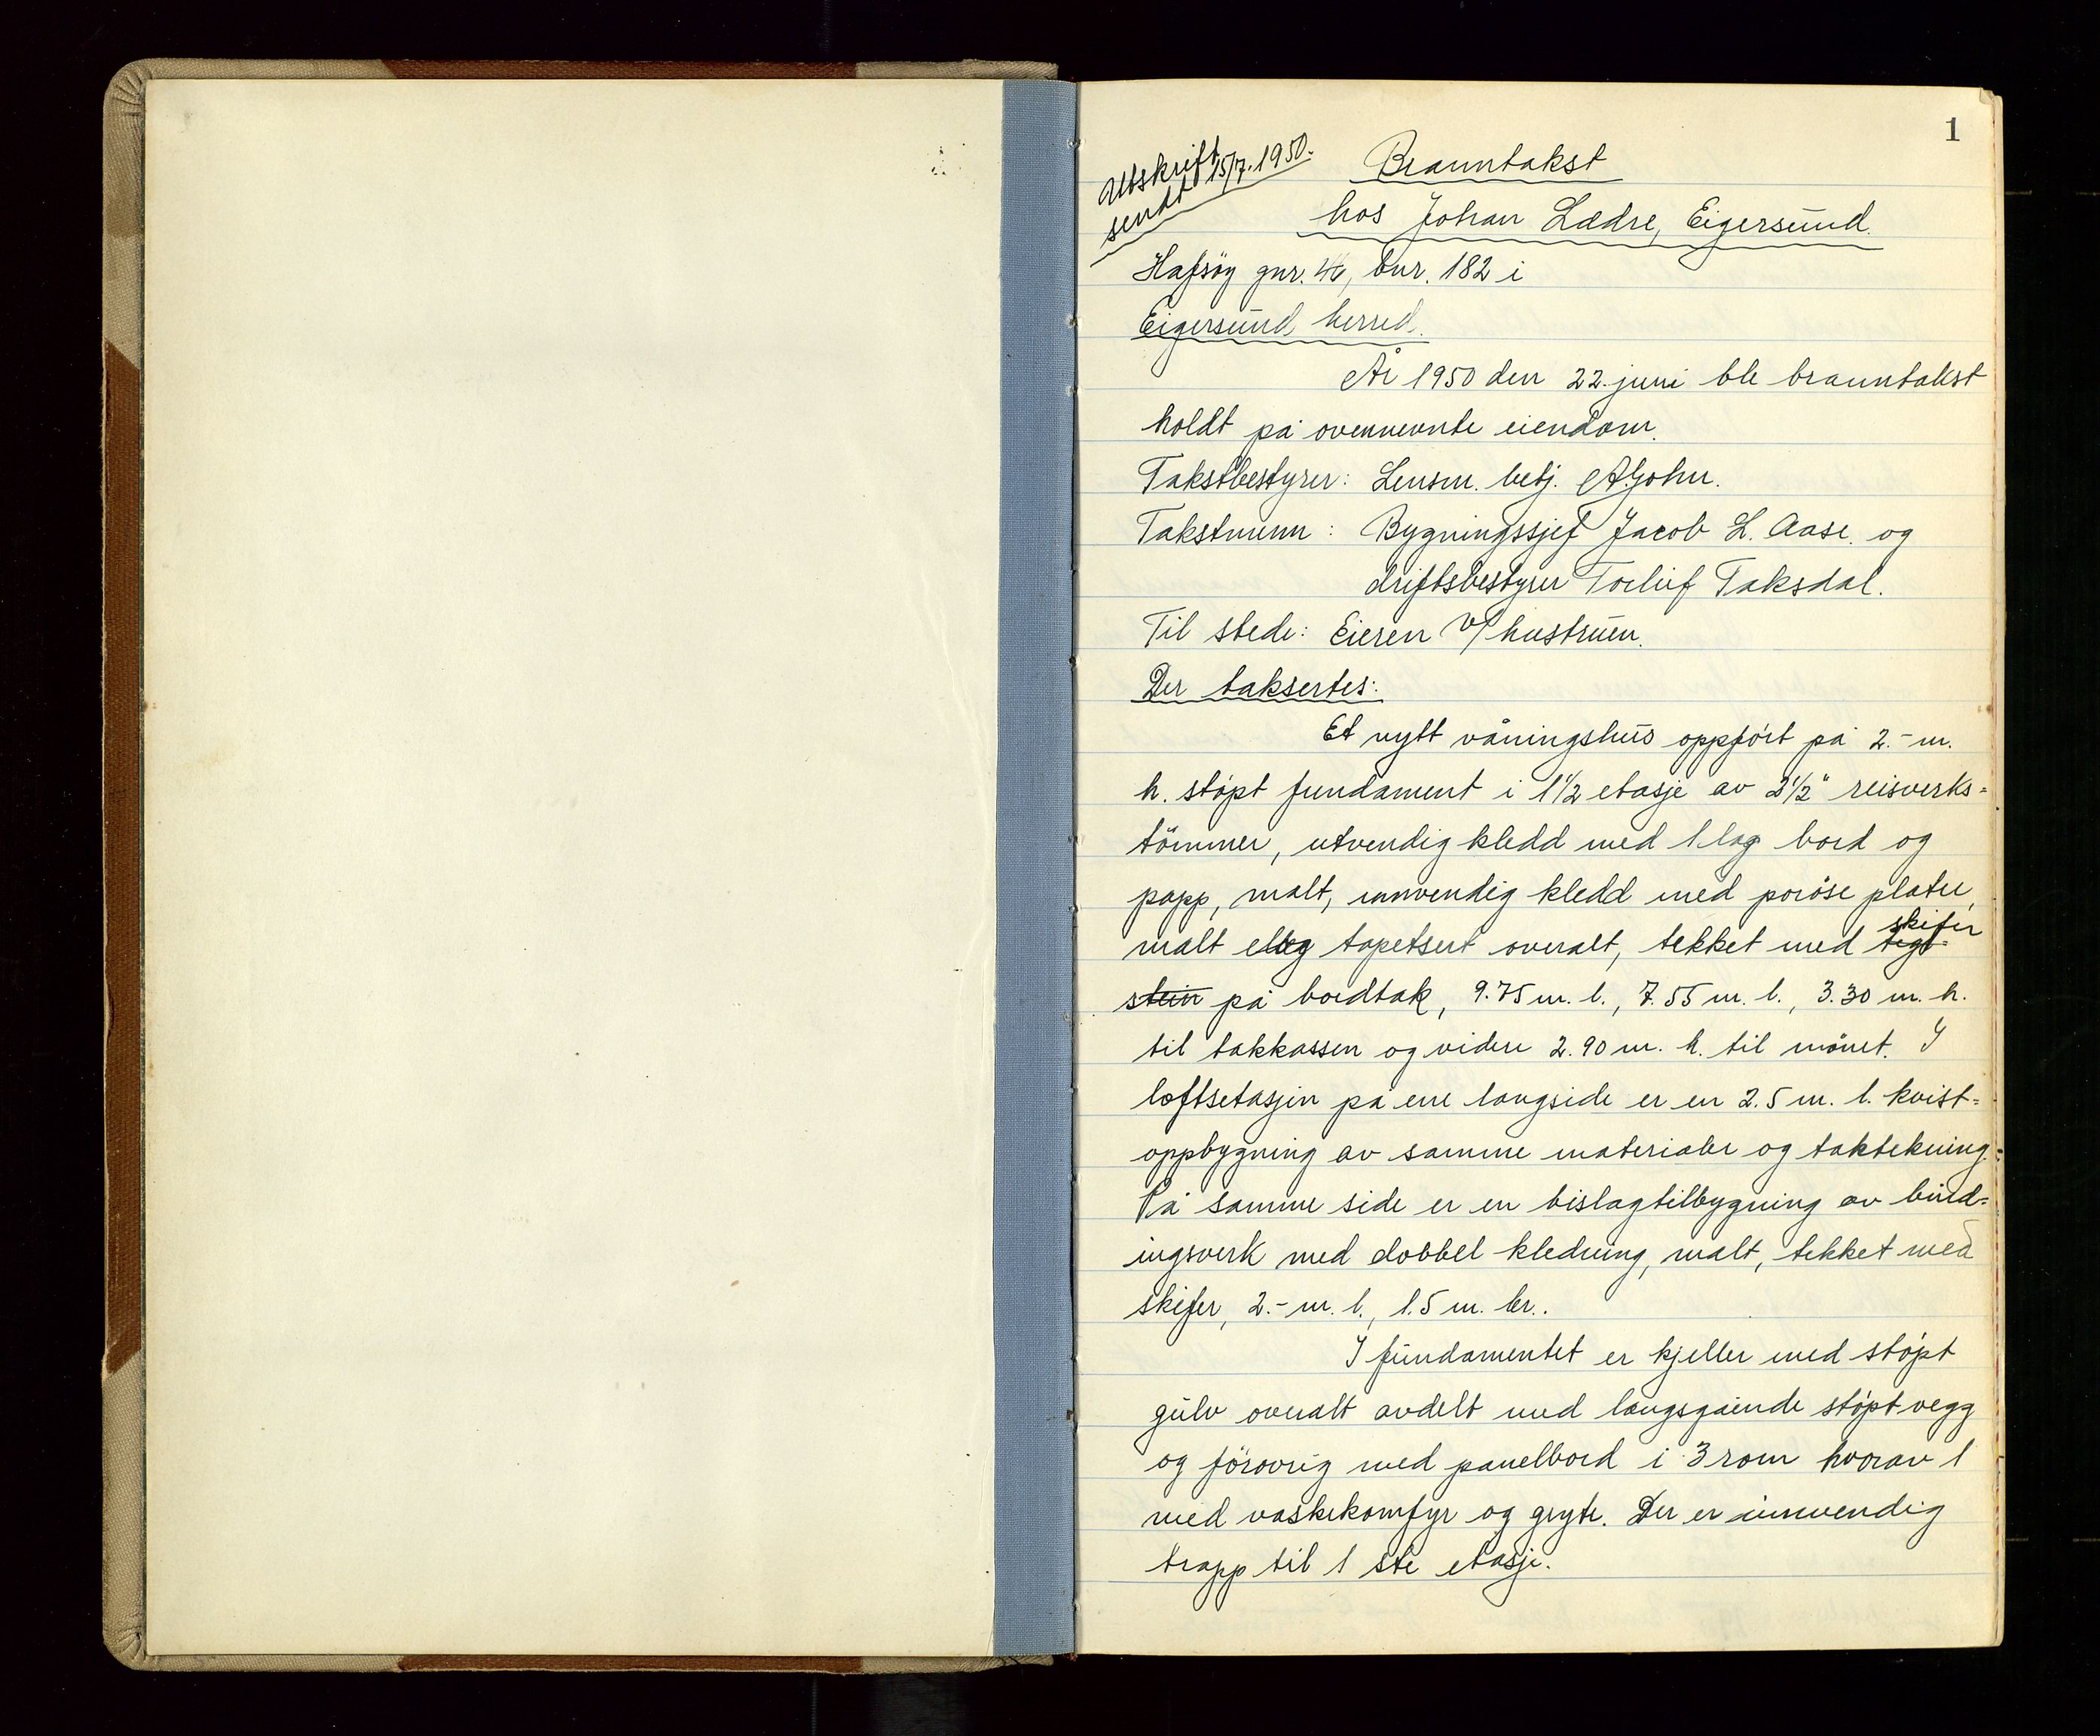 1
Utskrift
sendt 15/7.1950.
Branntakst
hos Johan Lædre, Eigersund.
Hafsøy gnr. 46, bnr. 182 i
Eigersund herred.
År 1950 den 22. juni ble branntakst
holdt på ovennevnte eiendom.
Takstbestyrer: Lensm. betj. A. John.
Takstmenn: Bygningssjef Jacob L. Aase. og
driftsbestyrer Torleif Taksdal.
Til stede: Eieren v/ hustruen.
Der taksertes:
Et nytt våningshus oppført på 2.- m.
h. støpt fundament i 1 1/2 etasje av 2 1/2" reisverks=
tømmer, utvendig kledd med 1 lag bord og
papp, malt, innvendig kledd med porøse plater,
malt og tapetsert overalt, tekket med tegl skifer
stein på bordtak, 9.75 m. l., 7.55 m. b., 3.30 m. h.
til takkassen og videre 2.90 m. h. til mønet. I
loftsetasjen på ene langside er en 2.5 m. l. kvist=
oppbygning av samme materialer og taktekning.
På samme side er en bislagtilbygning av bind=
ingsverk med dobbel kledning, malt, tekket med
skifer, 2.- m. l., 1.5 m. br..
I fundamentet er kjeller med støpt
gulv overalt avdelt med langsgående støpt vegg
og forøvrig med panelbord i 3 rom hvorav 1
med vaskekomfyr og gryte. Der er innvendig
trapp til 1 ste etasje.